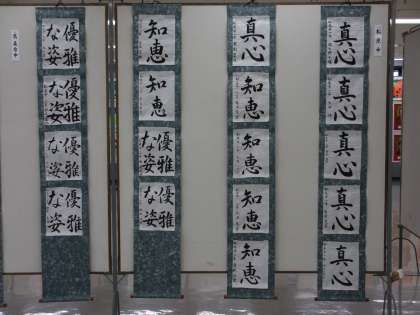 真心
真心
真心
真心
真心
真心
知恵
知恵
知恵
知恵
知恵
知恵
優雅
な姿
優雅
な姿
優雅
な姿
優雅
な姿
優雅
な姿
優雅
な姿